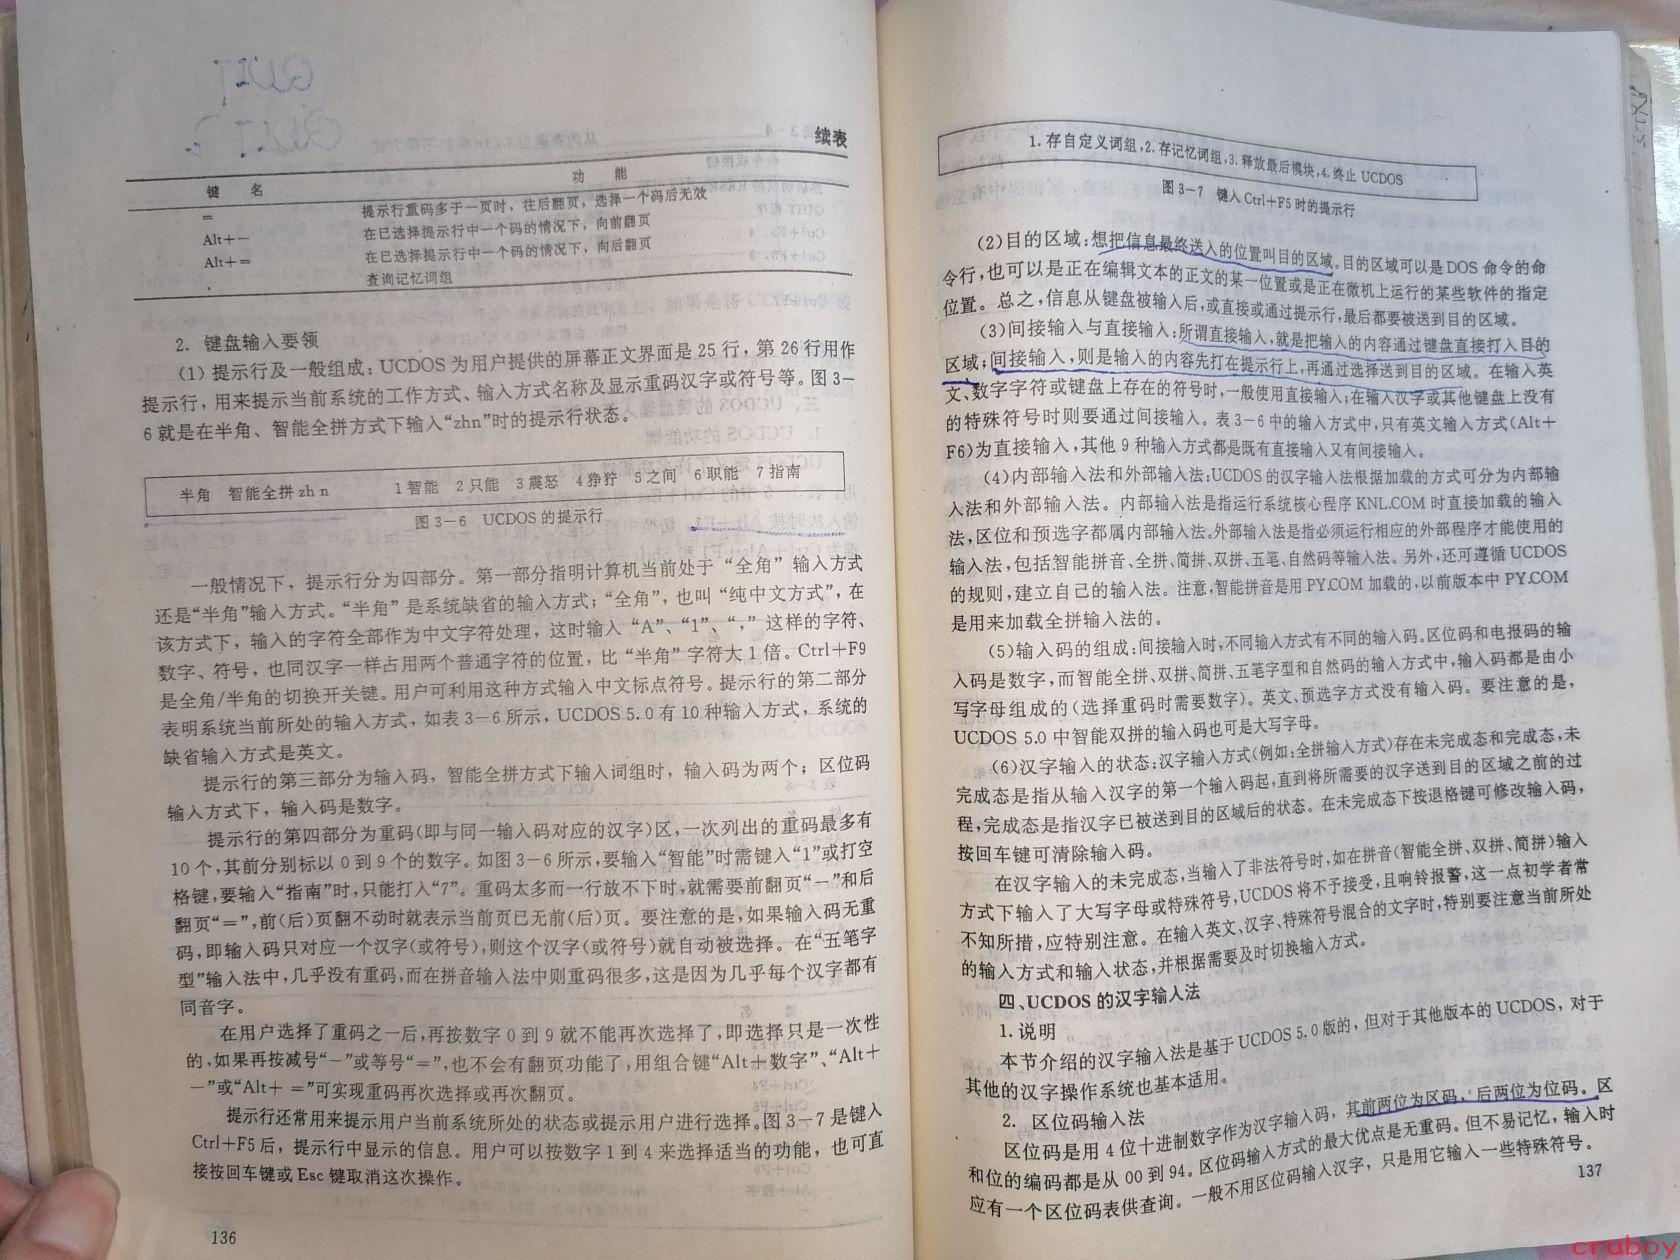 续表
键 名 功 能
= 提示行重码多于一页时，往后翻页，选择一个码后无效
Alt+− 在已选择提示行中一个码的情况下，向前翻页
Alt+= 在已选择提示行中一个码的情况下，向后翻页
查询记忆词组
2. 键盘输入要领
(1) 提示行及一般组成：UCDOS 为用户提供的屏幕正文界面是 25 行，第 26 行用作
提示行，用来提示当前系统的工作方式、输入方式名称及显示重码汉字或符号等。图 3−
6 就是在半角、智能全拼方式下输入“zhn”时的提示行状态。
半角 智能全拼 zh n 1 智能 2 只能 3 震怒 4 狰狞 5 之间 6 职能 7 指南
图 3−6 UCDOS 的提示行
一般情况下，提示行分为四部分。第一部分指明计算机当前处于 “全角” 输入方式
还是“半角”输入方式。“半角” 是系统缺省的输入方式；“全角”，也叫 “纯中文方式”，在
该方式下，输入的字符全部作为中文字符处理，这时输入 “A”、“1”、“，” 这样的字符、
数字、符号，也同汉字一样占用两个普通字符的位置，比 “半角” 字符大 1 倍。Ctrl+F9
是全角/半角的切换开关键。用户可利用这种方式输入中文标点符号。提示行的第二部分
表明系统当前所处的输入方式，如表 3−6 所示，UCDOS 5.0 有 10 种输入方式，系统的
缺省输入方式是英文。
提示行的第三部分为输入码，智能全拼方式下输入词组时，输入码为两个；区位码
输入方式下，输入码是数字。
提示行的第四部分为重码(即与同一输入码对应的汉字)区，一次列出的重码最多有
10 个，其前分别标以 0 到 9 个的数字。如图 3−6 所示，要输入“智能”时需键入“1”或打空
格键，要输入“指南”时，只能打入“7”。重码太多而一行放不下时，就需要前翻页“−”和后
翻页“=”，前(后)页翻不动时就表示当前页已无前(后)页。要注意的是，如果输入码无重
码，即输入码只对应一个汉字(或符号)，则这个汉字(或符号)就自动被选择。在“五笔字
型”输入法中，几乎没有重码，而在拼音输入法中则重码很多，这是因为几乎每个汉字都有
同音字。
在用户选择了重码之一后，再按数字 0 到 9 就不能再次选择了，即选择只是一次性
的，如果再按减号“−”或等号“=”，也不会有翻页功能了，用组合键“Alt+数字”、“Alt+
−”或“Alt+ =”可实现重码再次选择或再次翻页。
提示行还常用来提示用户当前系统所处的状态或提示用户进行选择。图 3−7 是键入
Ctrl+F5 后，提示行中显示的信息。用户可以按数字 1 到 4 来选择适当的功能，也可直
接按回车键或 Esc 键取消这次操作。
136
1. 存自定义词组，2. 存记忆词组，3. 释放最后模块，4. 终止 UCDOS
图 3−7 键入 Ctrl+F5 时的提示行
(2) 目的区域：想把信息最终送入的位置叫目的区域。目的区域可以是 DOS 命令的命
令行，也可以是正在编辑文本的正文的某一位置或是正在微机上运行的某些软件的指定
位置。总之，信息从键盘被输入后，或直接或通过提示行，最后都要被送到目的区域。
(3) 间接输入与直接输入：所谓直接输入，就是把输入的内容通过键盘直接打入目的
区域；间接输入，则是输入的内容先打在提示行上，再通过选择送到目的区域。在输入英
文、数字字符或键盘上存在的符号时，一般使用直接输入；在输入汉字或其他键盘上没有
的特殊符号时则要通过间接输入。表 3−6 中的输入方式中，只有英文输入方式(Alt+
F6)为直接输入，其他 9 种输入方式都是既有直接输入又有间接输入。
(4) 内部输入法和外部输入法：UCDOS 的汉字输入法根据加载的方式可分为内部输
入法和外部输入法。内部输入法是指运行系统核心程序 KNL.COM 时直接加载的输入
法，区位和预选字都属内部输入法。外部输入法是指必须运行相应的外部程序才能使用的
输入法，包括智能拼音、全拼、简拼、双拼、五笔、自然码等输入法。另外，还可遵循 UCDOS
的规则，建立自己的输入法。注意，智能拼音是用 PY.COM 加载的，以前版本中 PY.COM
是用来加载全拼输入法的。
(5) 输入码的组成：间接输入时，不同输入方式有不同的输入码。区位码和电报码的输
入码是数字，而智能全拼、双拼、简拼、五笔字型和自然码的输入方式中，输入码都是由小
写字母组成的(选择重码时需要数字)。英文、预选字方式没有输入码。要注意的是，
UCDOS 5.0 中智能双拼的输入码也可是大写字母。
(6) 汉字输入的状态：汉字输入方式(例如：全拼输入方式)存在未完成态和完成态，未
完成态是指从输入汉字的第一个输入码起，直到将所需要的汉字送到目的区域之前的过
程，完成态是指汉字已被送到目的区域后的状态。在未完成态下按退格键可修改输入码，
按回车键可清除输入码。
在汉字输入的未完成态，当输入了非法符号时，如在拼音(智能全拼、双拼、简拼)输入
方式下输入了大写字母或特殊符号，UCDOS 将不予接受，且响铃报警，这一点初学者常
不知所措，应特别注意。在输入英文、汉字、特殊符号混合的文字时，特别要注意当前所处
的输入方式和输入状态，并根据需要及时切换输入方式。
四、UCDOS 的汉字输入法
1. 说明
本节介绍的汉字输入法是基于 UCDOS 5.0 版的，但对于其他版本的 UCDOS，对于
其他的汉字操作系统也基本适用。
2. 区位码输入法
区位码是用 4 位十进制数字作为汉字输入码，其前两位为区码，后两位为位码。区
和位的编码都是从 00 到 94。区位码输入方式的最大优点是无重码。但不易记忆，输入时
应有一个区位码表供查询。一般不用区位码输入汉字，只是用它输入一些特殊符号。
137
cruboy